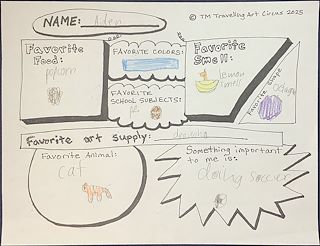 NAME: Aden
© TM Travelling Art Circus 2025
Favorite Food:
popcorn
FAVORITE COLORS:
FAVORITE SCHOOL SUBJECTS:
PE
Favorite Smell:
lemon
smell
Favorite Shape
Octagon
Favorite art supply: drawing
Favorite Animal:
cat
Something important to me is:
doing soccer